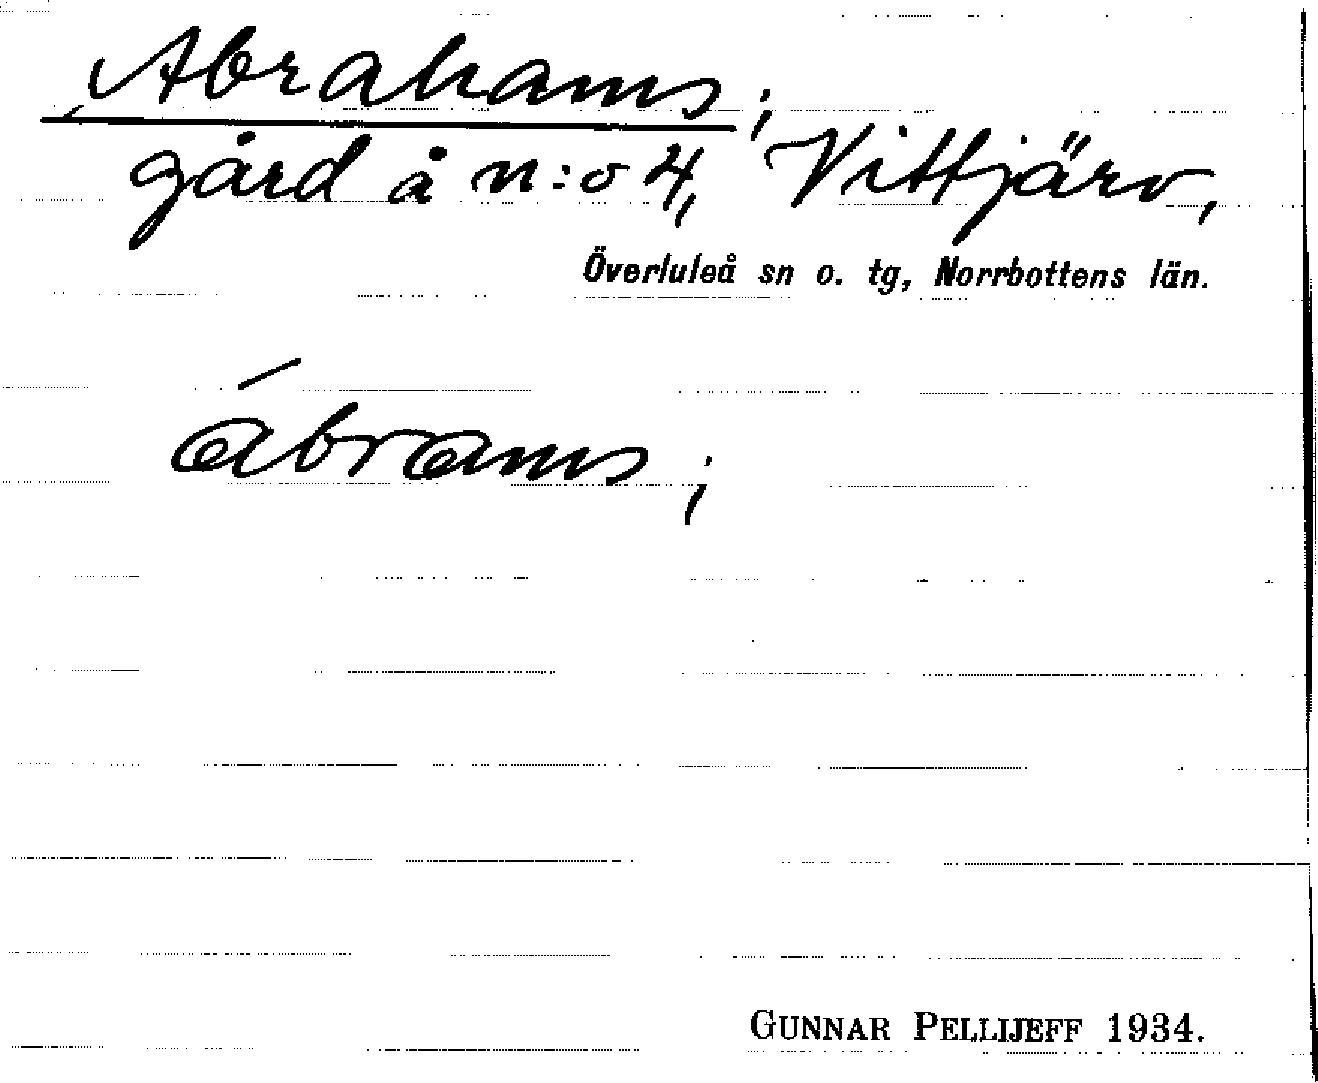 Abrahams;
gård å n:o 4, Vittjärv,
Överluleå sn o. tg, Norrbottens län.
ábrams;
GUNNAR PELLIJEFF 1934.